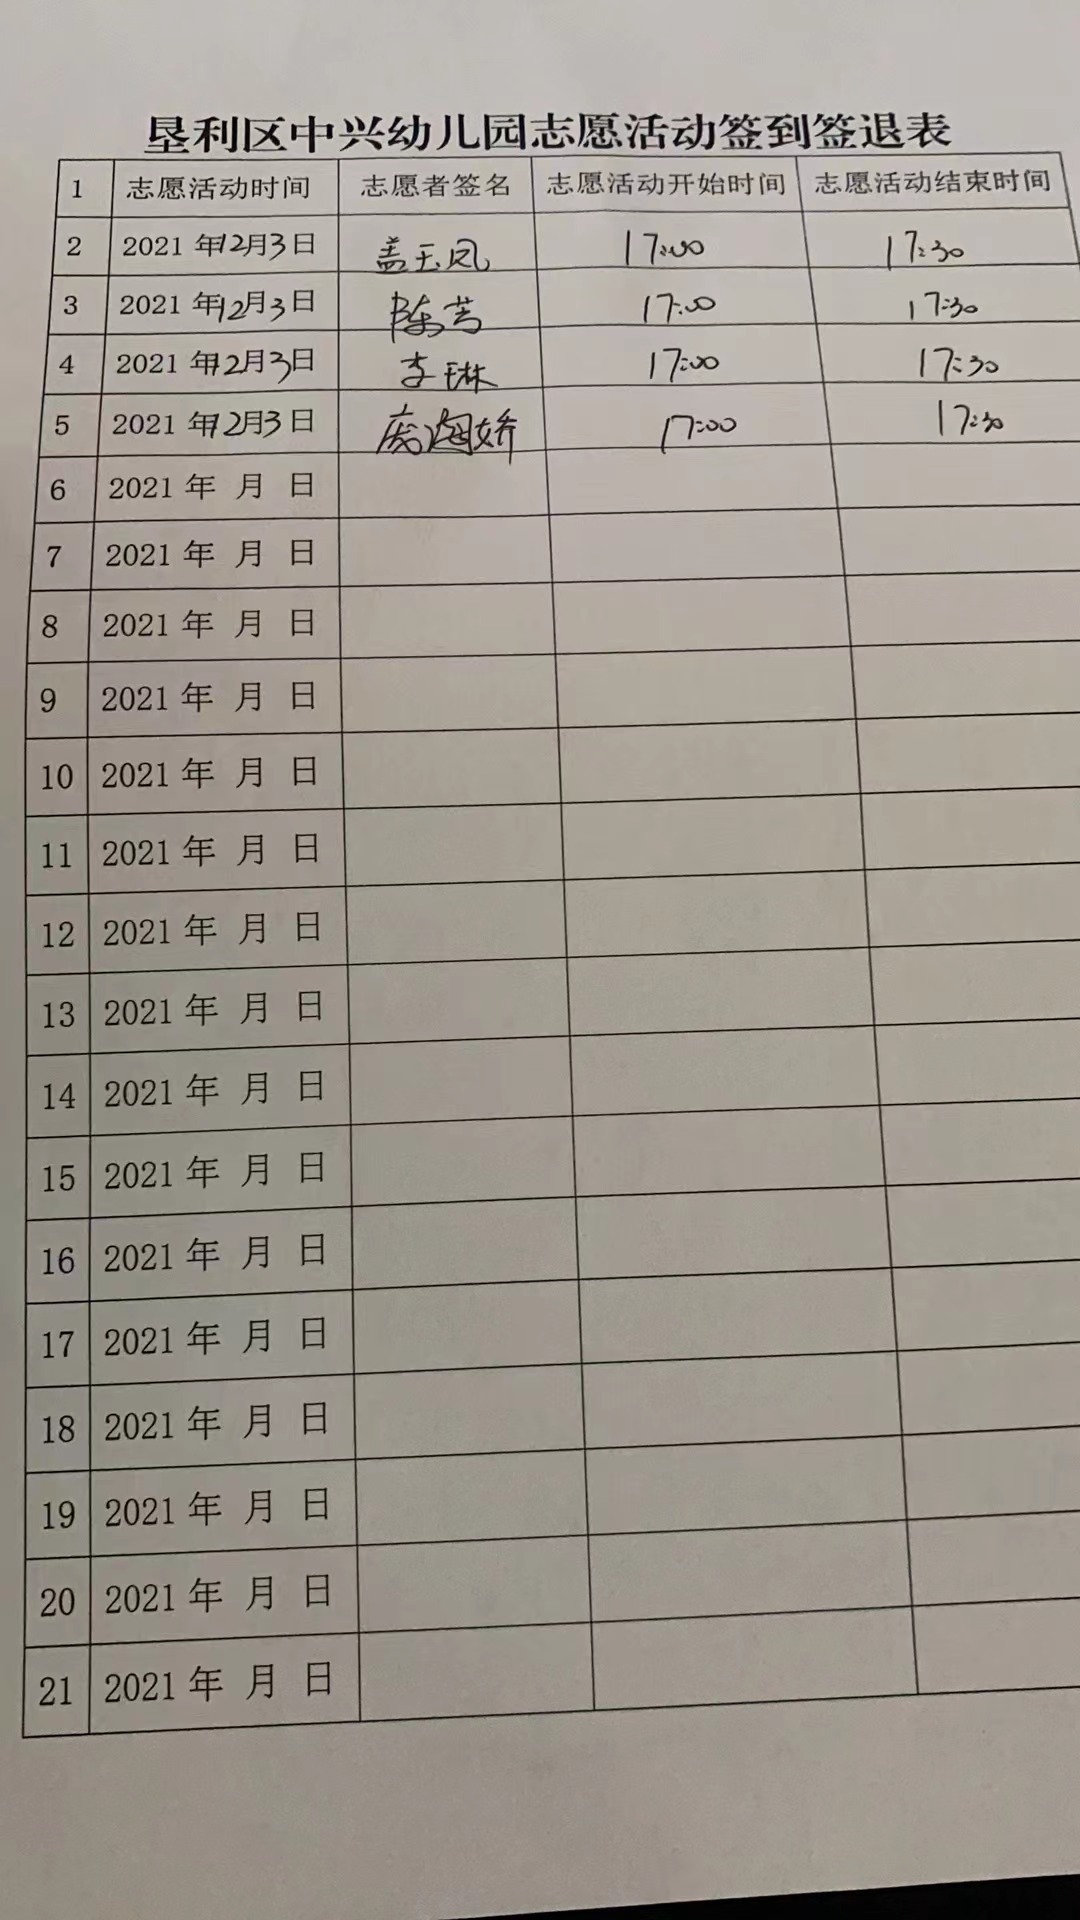 垦利区中兴幼儿园志愿活动签到签退表
1 志愿活动时间 志愿者签名 志愿活动开始时间 志愿活动结束时间
2 2021年12月3日 盖玉凤 17:00 17:30
3 2021年12月3日 陈芳 17:00 17:30
4 2021年12月3日 李琳 17:00 17:30
5 2021年12月3日 17:00 17:30
6 2021年 月 日
7 2021年 月 日
8 2021年 月 日
9 2021年 月 日
10 2021年 月 日
11 2021年 月 日
12 2021年 月 日
13 2021年 月 日
14 2021年 月 日
15 2021年 月 日
16 2021年 月 日
17 2021年 月 日
18 2021年 月 日
19 2021年 月 日
20 2021年 月 日
21 2021年 月 日